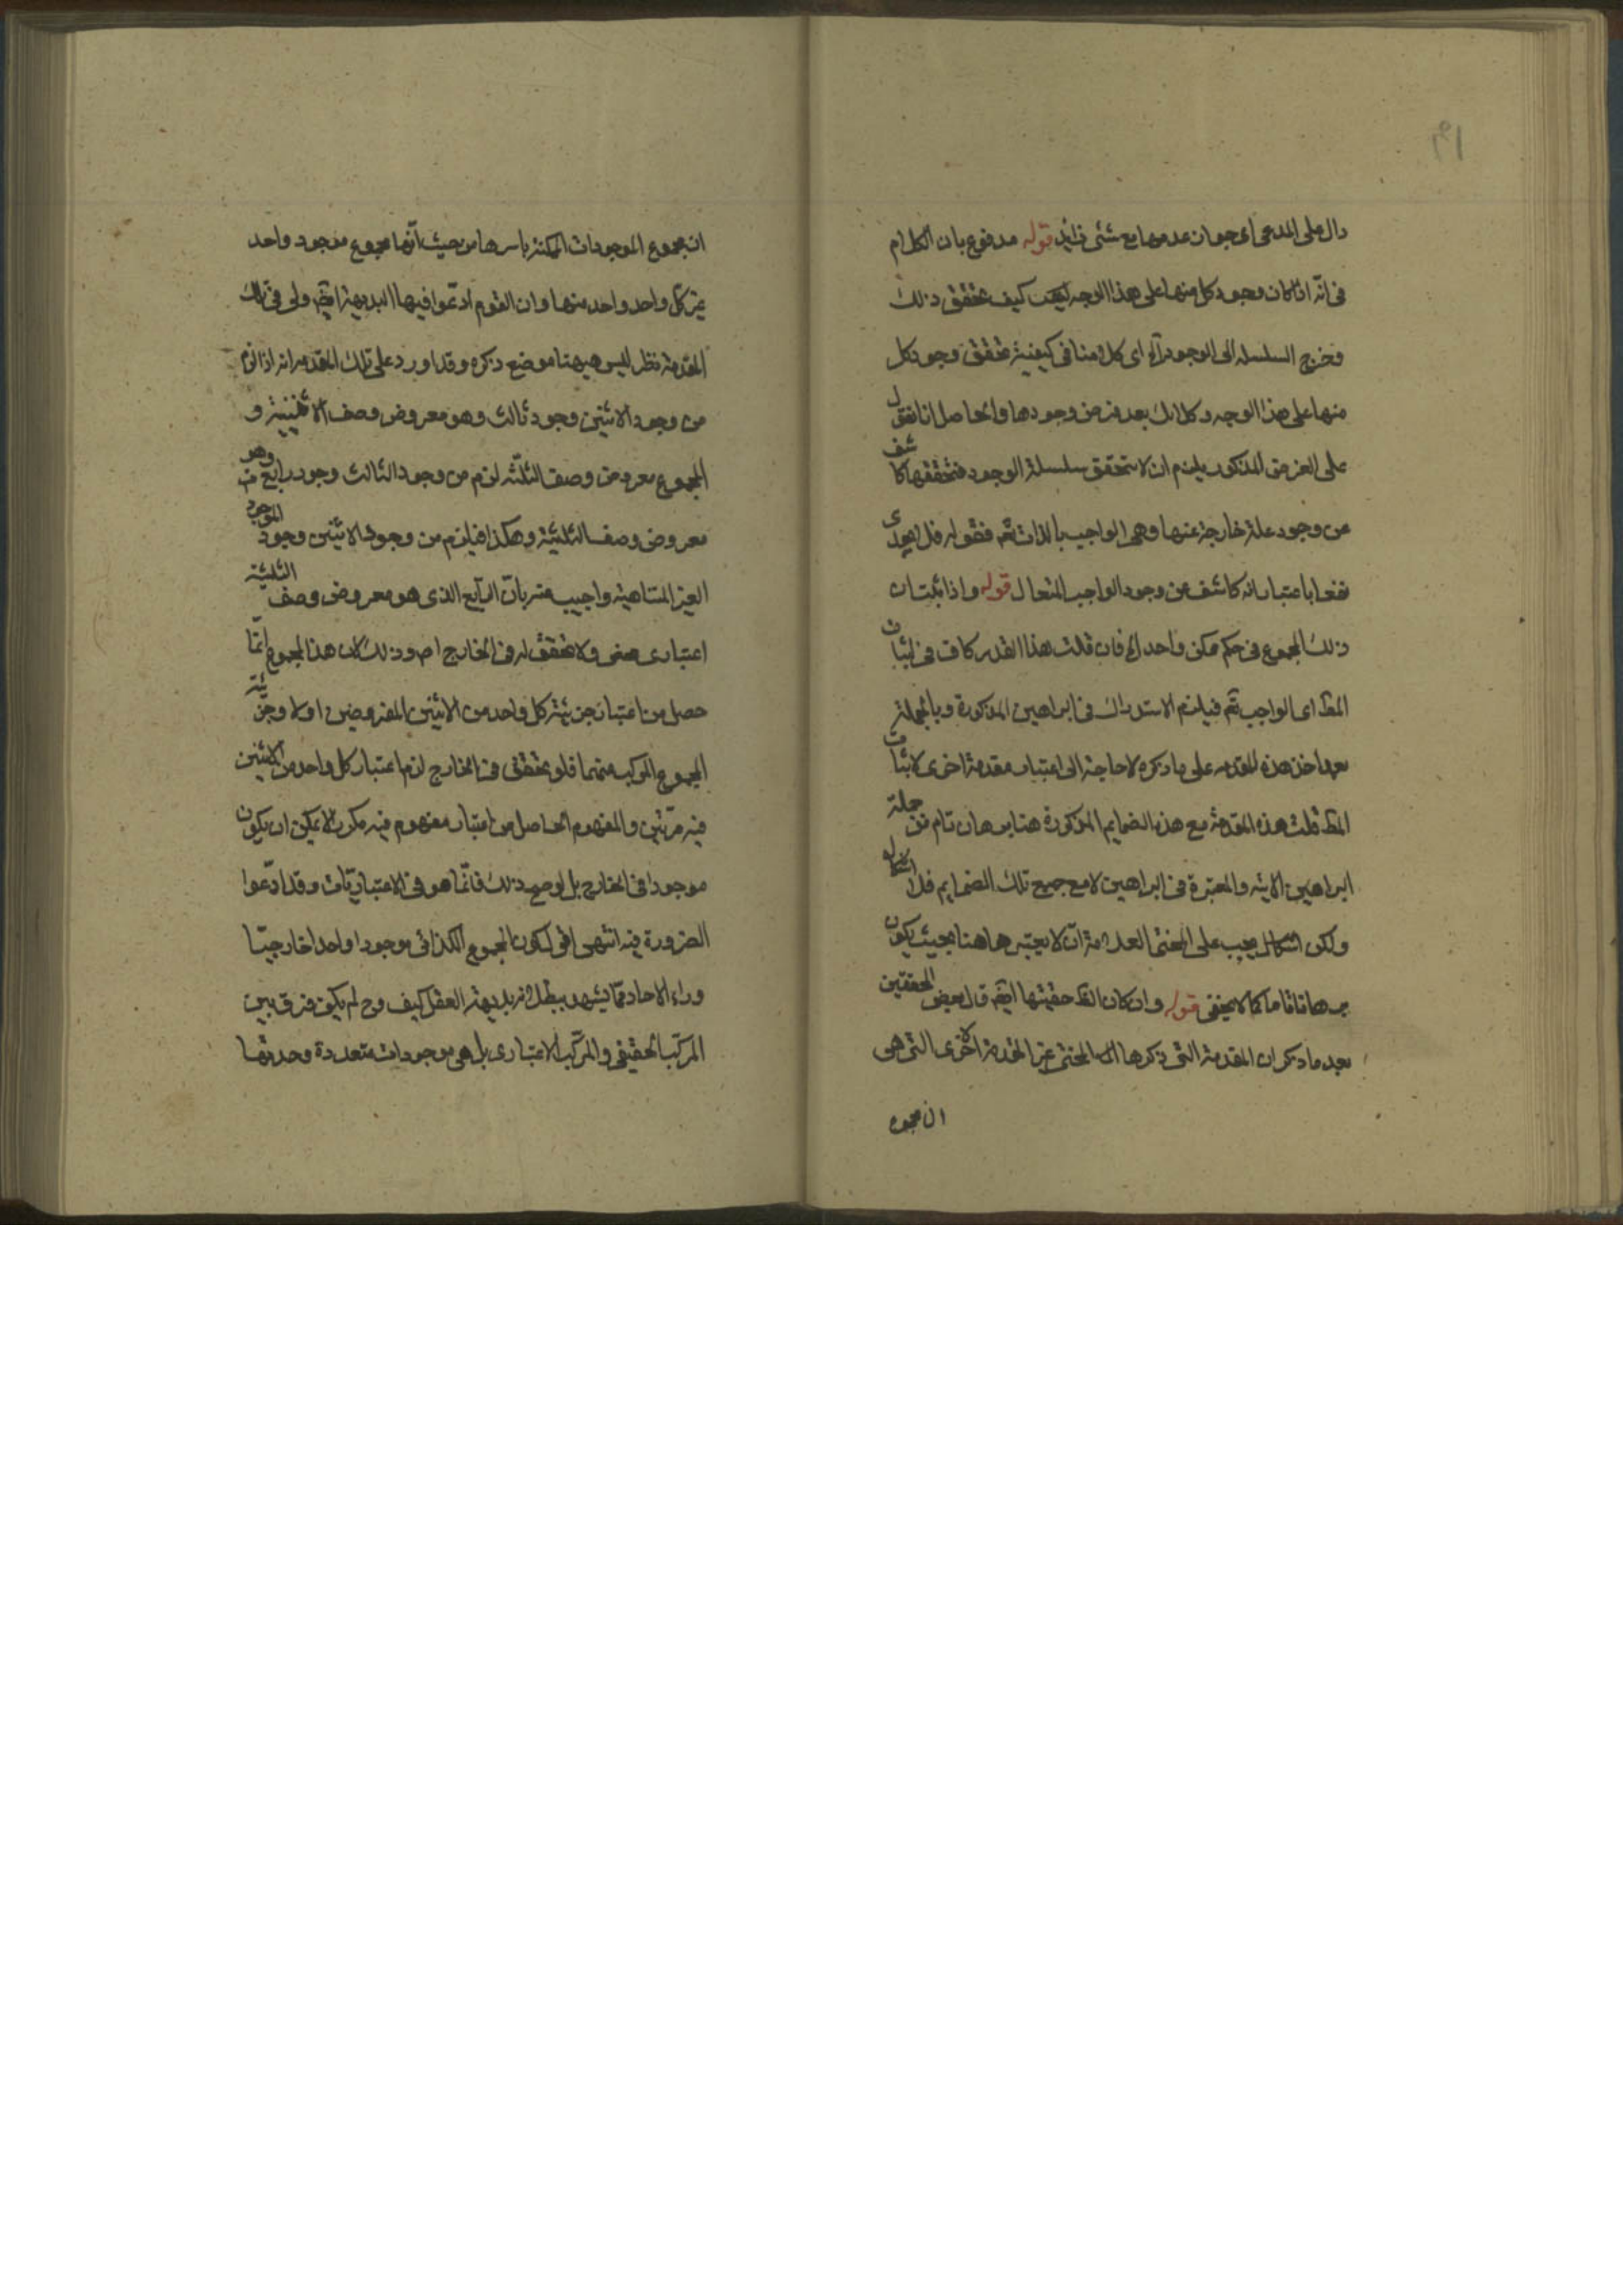 ١٩
دال على المدعى اى جواز عدمها مع شئ زايد قوله مدفوع بان الكلام
فى انه اذا كان وجود كل منها على هذا الوجه كيف تحقق ذلك
وخرج السلسله الى الوجود آه اى كلامنا فى كيفية تحقق وجود كل
منها على هذا الوجه وكلامك بعد فرض وجودها والحاصل انا نقول
على الفرض المذكور يلزم ان لا يتحقق سلسلة الوجود فتحققها كاشف
عن وجود علة خارجة عنها وهى الواجب بالذات تم فقوله فلا يجدى
نفعا باعتبار انه كاشف عن وجود الواجب المتعال قوله واذا ثبت ان
ذلك المجموع فى حكم ممكن واحد اه فان قلت هذا القدر كاف فى اثبات
المط اى الواجب تم فيلزم الاستدراك فى البراهين المذكورة وبالجملة
بعد اخذ هذه المقدمه على ما ذكره لا حاجة الى اعتبار مقدمة اخرى لاثبات
المط قلت هذه المقدمة مع هذه الضمايم المذكورة هنا برهان تام من جملة
البراهين الاتيه والمعتبرة فى البراهين لا مع جميع تلك الضمايم فلا اشكال
ولكن اشكال يجب على المحشى العلامة ان لا يعتبرها هنا بحيث يكون
برهانا تاما كما لا يخفى قوله وان كان الظ حقيتها ايضم قال بعض المحققين
بعد ما ذكر ان المقدمة التى ذكرها المحشى غير المقدمة الاخرى التى هى
ان مجموع
ان مجموع الموجودات الممكنة باسرها من حيث انها مجموع موجود واحد
غير كل واحد واحد منها وان القوم ادعوا فيها البديهة ايضم ولى فى تلك
المقدمة نظر ليس هيهنا موضع ذكره وقد اورد على تلك المقدمه انه اذا لزم
من وجود الاثنين وجود ثالث وهو معروض وصف الاثنينية و
المجموع معروض وصف الثلثه لزم من وجود الثالث وجود رابع وهو
معروض وصف الثلثية وهكذا فيلزم من وجود الاثنين وجود الموجود
الغير المتناهية واجيب عنه بان الرابع الذى هو معروض وصف الثلثية
اعتبارى محض ولا تحقق له فى الخارج اص وذلك لان هذا المجموع انما
حصل من اعتبار جزئية كل واحد من الاثنين المفروضين اولا وجزئية
المجموع المركب منهما فلو تحقق فى الخارج لزم اعتبار كل واحد من الاثنين
فيه مرتين والمفهوم الحاصل من اعتبار مفهوم فيه مكررا لا يمكن ان يكون
موجودا فى الخارج بل لو صح ذلك فانما هو فى الاعتباريات وقد ادعوا
الضرورة فيه انتهى اقول كون المجموع الكذائى موجودا واحدا خارجيا
وراء الاحاد مما يشهد ببطلانه بديهة العقل كيف وح لم يكن فرق بين
المركب الحقيقى والمركب الاعتبارى بل هى موجودات متعددة وحدتها